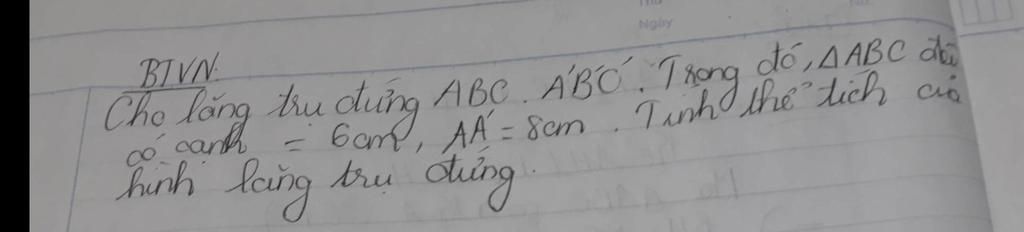 Ngày
BTVN.
Cho lăng trụ đứng ABC. A'B'C'. Trong đó, ΔABC đều
có cạnh = 6cm, AA' = 8cm. Tính thể tích của
hình lăng trụ đứng.